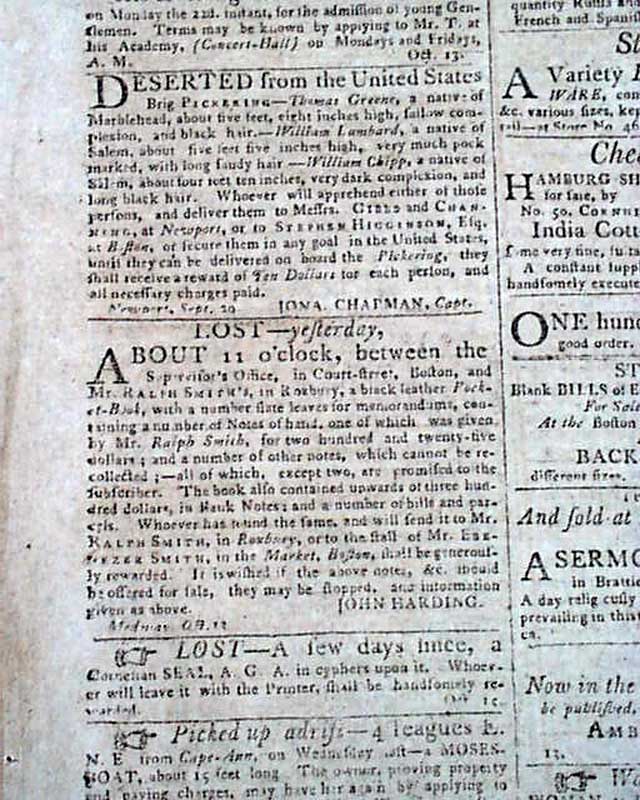 on Monday the 22d. instant, for the admission of young Gen-
tlemen. Terms may be known by applying to Mr. T. at
his Academy, (Concert-Hall) on Mondays and Fridays,
A. M. Oct. 13.
DESERTED from the United States
Brig PICKERING—Thomas Greene, a native of
Marblehead, about five feet, eight inches high, sallow com-
plexion, and black hair.—William Lambard, a native of
Salem, about five feet five inches high, very much pock
marked, with long sandy hair—William Chipp, a native of
Salem, about four feet ten inches, very dark complexion, and
long black hair. Whoever will apprehend either of those
persons, and deliver them to Messrs. GIBBS and CHAN-
NING, at Newport, or to STEPHEN HIGGINSON, Esq.
at Boston, or secure them in any goal in the United States,
until they can be delivered on board the Pickering, they
shall receive a reward of Ten Dollars for each person, and
all necessary charges paid.
Newport, Sept. 29 JONA. CHAPMAN, Capt.
LOST—yesterday,
ABOUT 11 o'clock, between the
Supervisor's Office, in Court-street, Boston, and
Mr. RALPH SMITH'S, in Roxbury, a black leather Pock-
et-Book, with a number slate leaves for memorandums, con-
taining a number of Notes of hand, one of which was given
by Mr. Ralph Smith, for two hundred and twenty-five
dollars; and a number of other notes, which cannot be re-
collected;—all of which, except two, are promised to the
subscriber. The book also contained upwards of three hun-
dred dollars, in Bank Notes; and a number of bills and par-
cels. Whoever has found the same, and will send it to Mr.
RALPH SMITH, in Roxbury, or to the stall of Mr. EBE-
NEZER SMITH, in the Market, Boston, shall be generous-
ly rewarded. It is wished if the above notes, &c. should
be offered for sale, they may be stopped, and information
given as above. JOHN HARDING.
Medway, Oct. 12
LOST—A few days since, a
Cornelian SEAL, A. G. A. in cyphers upon it. Whoev-
er will leave it with the Printer, shall be handsomely re-
warded. Oct. 15.
Picked up adrift—4 leagues E.
N. E from Cape-Ann, on Wednesday last—a MOSES-
BOAT, about 15 feet long. The owner, proving property
and paying charges, may have her again by applying to
quantity Russia and
French and Spanis
St
A Variety
WARE, con
&c. various sizes, kep
tail—at Store No. 46
Chea
HAMBURG SH
for sale, by
No. 50, CORNHI
India Cott
some very fine, suita
A constant suppl
handsomely execute
ONE hund
good order.
ST
Blank BILLS of E
For Sale
At the Boston
BACK
different sizes.
And sold at
A SERMO
in Brattl
A day relig ously
prevailing in this
ca.
Now in the
be published,
AMB
13.